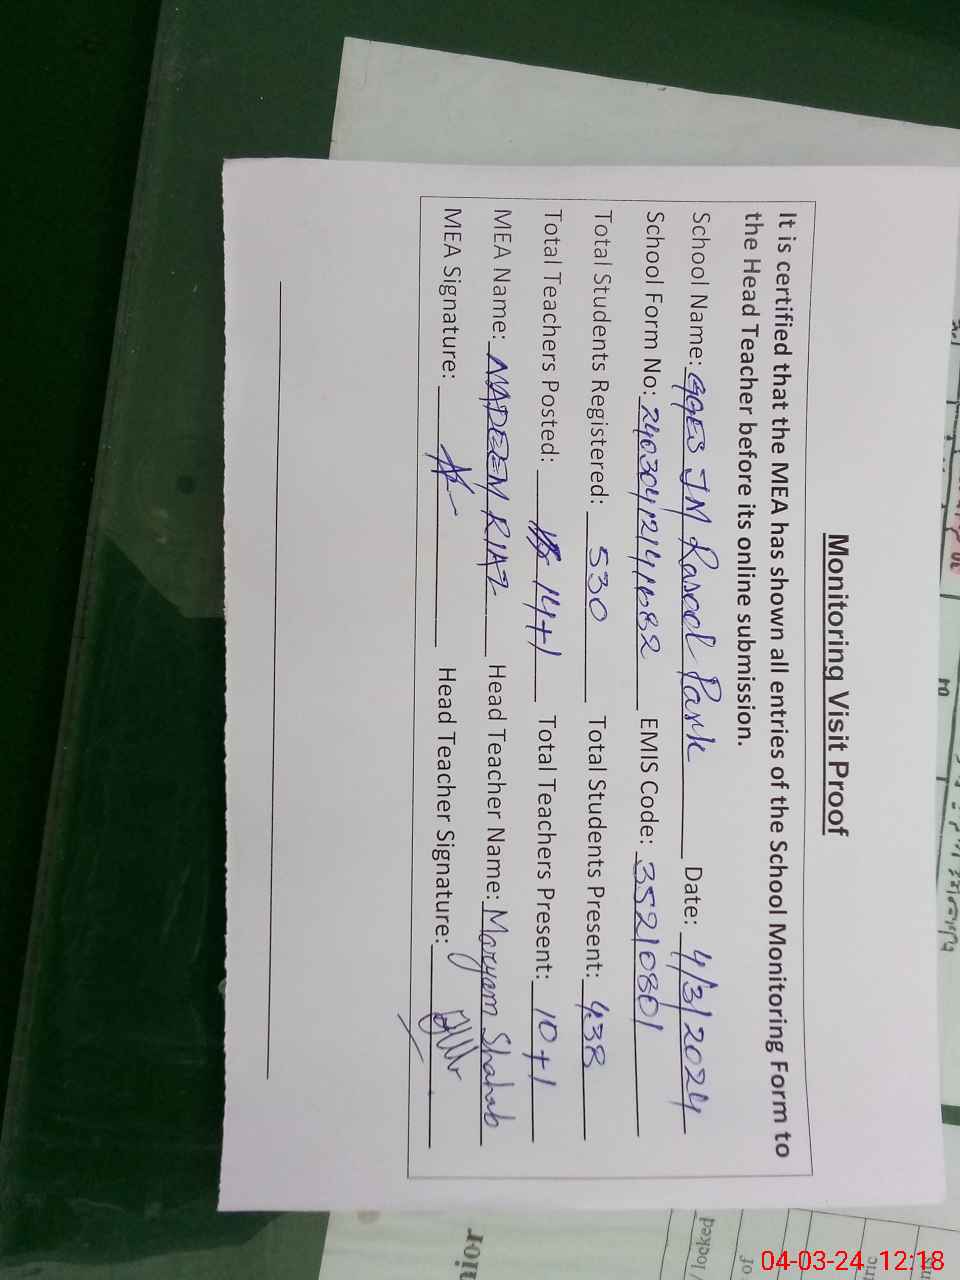 Monitoring Visit Proof
It is certified that the MEA has shown all entries of the School Monitoring Form to
the Head Teacher before its online submission.
School Name: GGES JM Rasool Park Date: 4/3/2024
School Form No: EMIS Code: 35210801
Total Students Registered: 530 Total Students Present: 438
Total Teachers Posted: 14+1 Total Teachers Present: 10+1
MEA Name: NADEEM RIAZ Head Teacher Name: Maryam Shahab
MEA Signature: Head Teacher Signature:
locked /
of
04-03-24 12:18